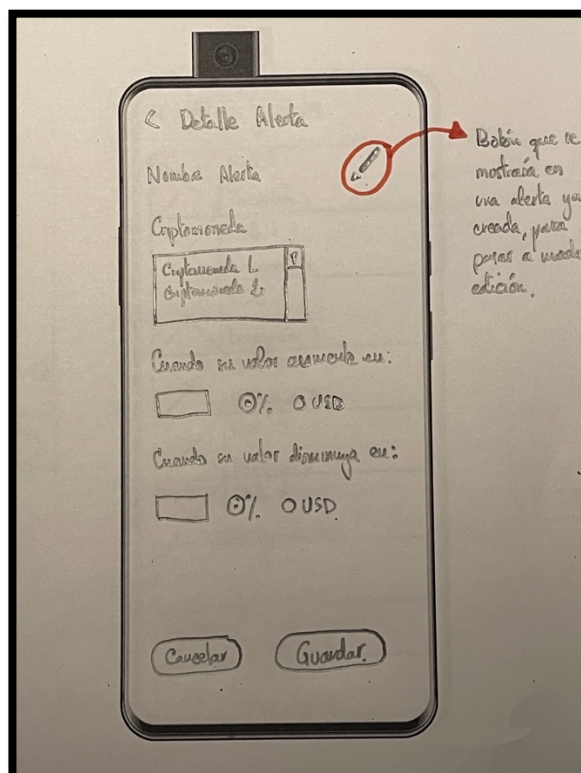 < Detalle Alerta
Nombre Alerta
Criptomoneda
Criptomoneda 1.
Criptomoneda 2.
Cuando su valor aumente en:
% USD
Cuando su valor disminuya en:
% USD.
Cancelar
Guardar.
Botón que se
mostraría en
una alerta ya
creada, para
pasar a modo
edición.